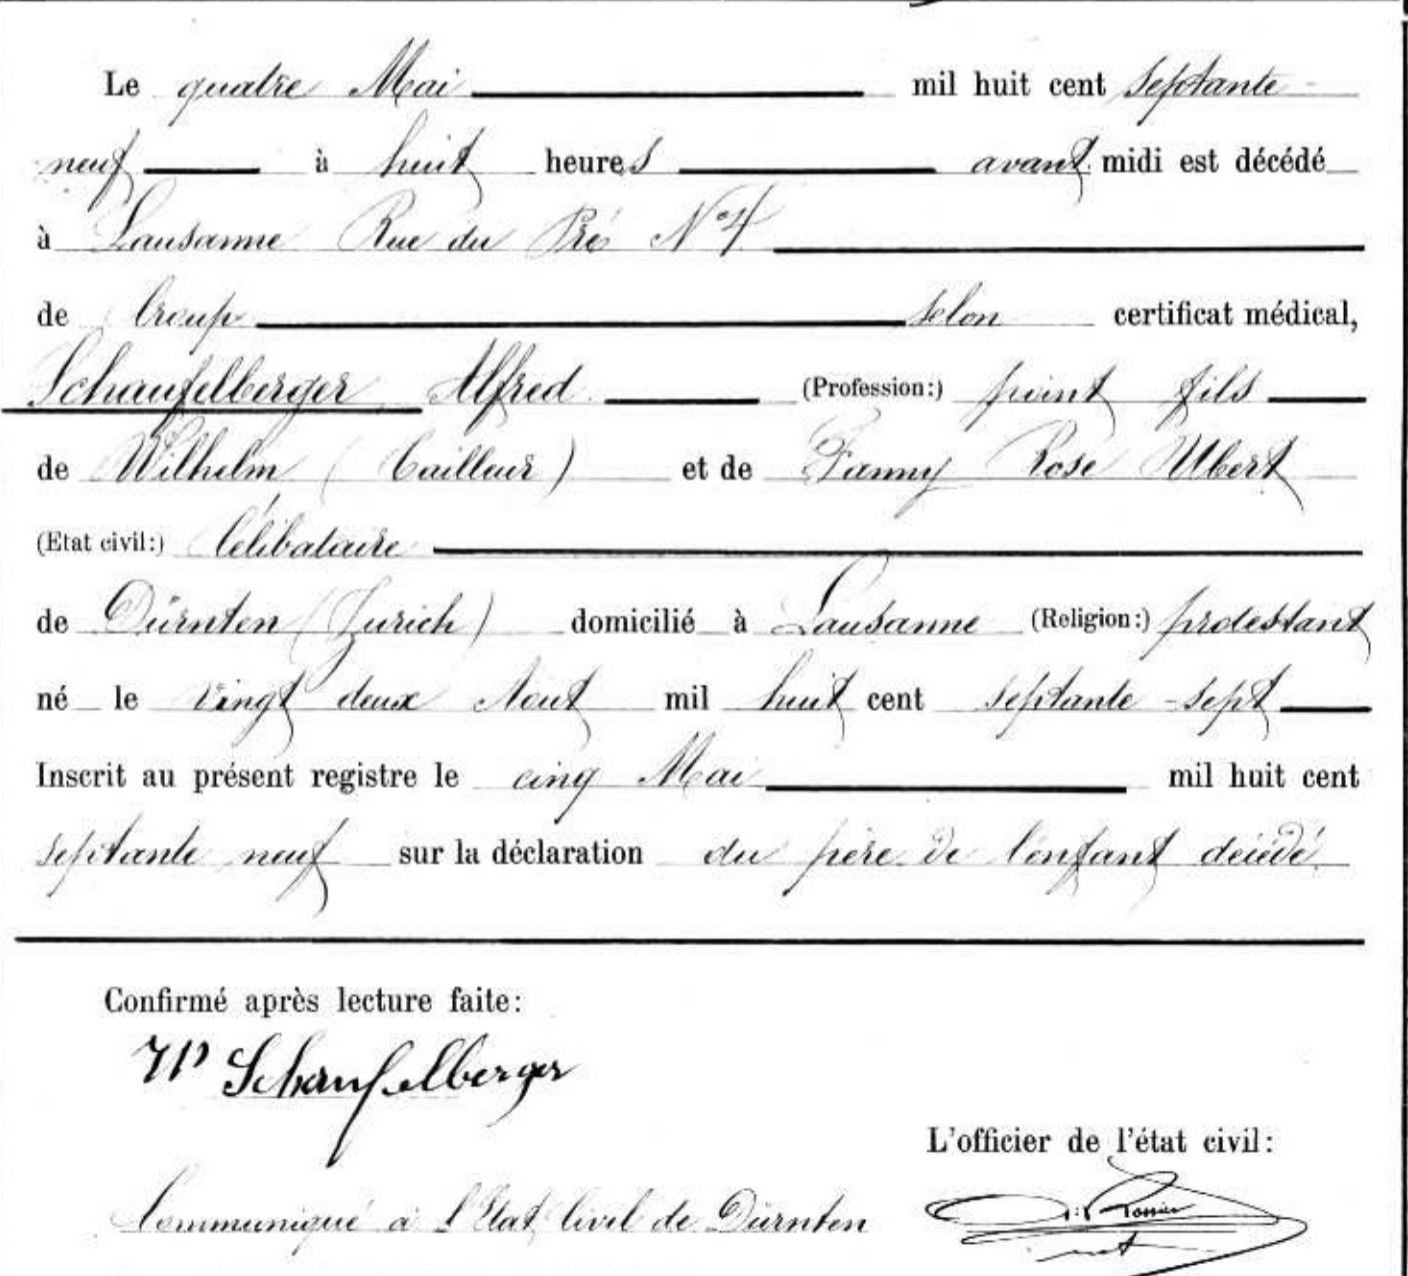 Le quatre Mai mil huit cent septante-
neuf à huit heures avant midi est décédé
à Lausanne Rue du Pré N° 4
de Croup selon certificat médical,
Schaufelberger Alfred (Profession:) point fils
de Wilhelm (Tailleur) et de Fanny Rose Ubert
(Etat civil:) Célibataire
de Dürnten (Zurich) domicilié à Lausanne (Religion:) protestant
né le vingt deux Aout mil huit cent septante-sept
Inscrit au présent registre le cinq Mai mil huit cent
septante neuf sur la déclaration du père de l'enfant décédé
Confirmé après lecture faite:
Schaufelberger
L'officier de l'état civil:
Communiqué à l'Etat Civil de Dürnten